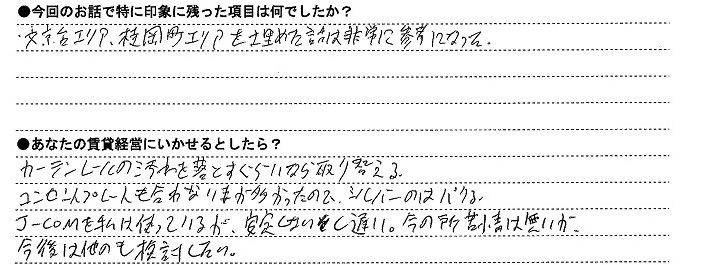 ●今回のお話で特に印象に残った項目は何でしたか？
・文京台エリア、桂岡町エリアを埋めた話は非常に参考になった。
●あなたの賃貸経営にいかせるとしたら？
カーテンレールの汚れを落とすぐらいなら取り替える。
コンセントプレートも合わないまが多かったので、シルバーのはパクる。
J-COMを私は使っているが、安定しないし遅い。今の所苦情は無いが、
今後は他のも検討したい。